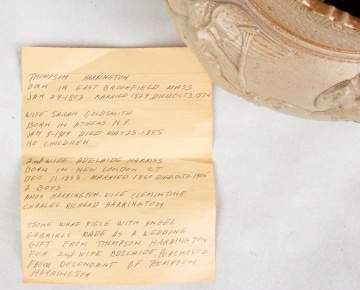 THOMPSON HARRINGTON
BORN IN EAST BROOKFIELD MASS
MARRIED 1829 DIED OCT 3, 1872
WIFE SARAH GOLDSMITH
BORN IN ATHENS N.Y.
DIED MAY 23-1855
NO CHILDREN
2nd WIFE ADELAIDE HARRISS
BORN IN NEW LONDON CT
DEC 11-1833
2 BOYS
HARRINGTON. WIFE CLEMINTINE
CHARLES RICHARD HARRINGTON
STONE WARE PIECE WITH ANGEL
GABRIEL MADE AS A WEDDING
GIFT FROM THOMPSON HARRINGTON
FOR 2nd WIFE ADELAIDE, PURCHASED
FROM DESCENDANT OF THOMPSON
HARRINGTON